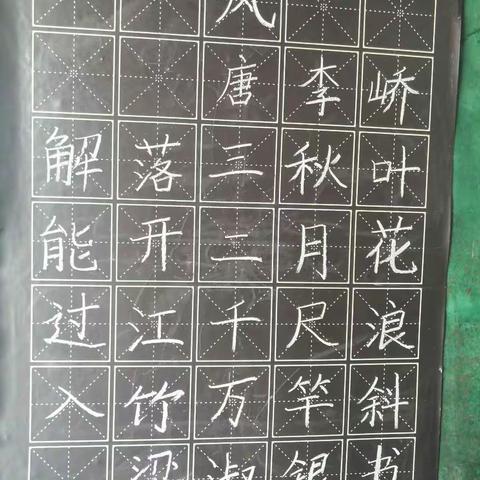 风
唐 李 峤
解 落 三 秋 叶
能 开 二 月 花
过 江 千 尺 浪
入 竹 万 竿 斜
梁 淑 银 书